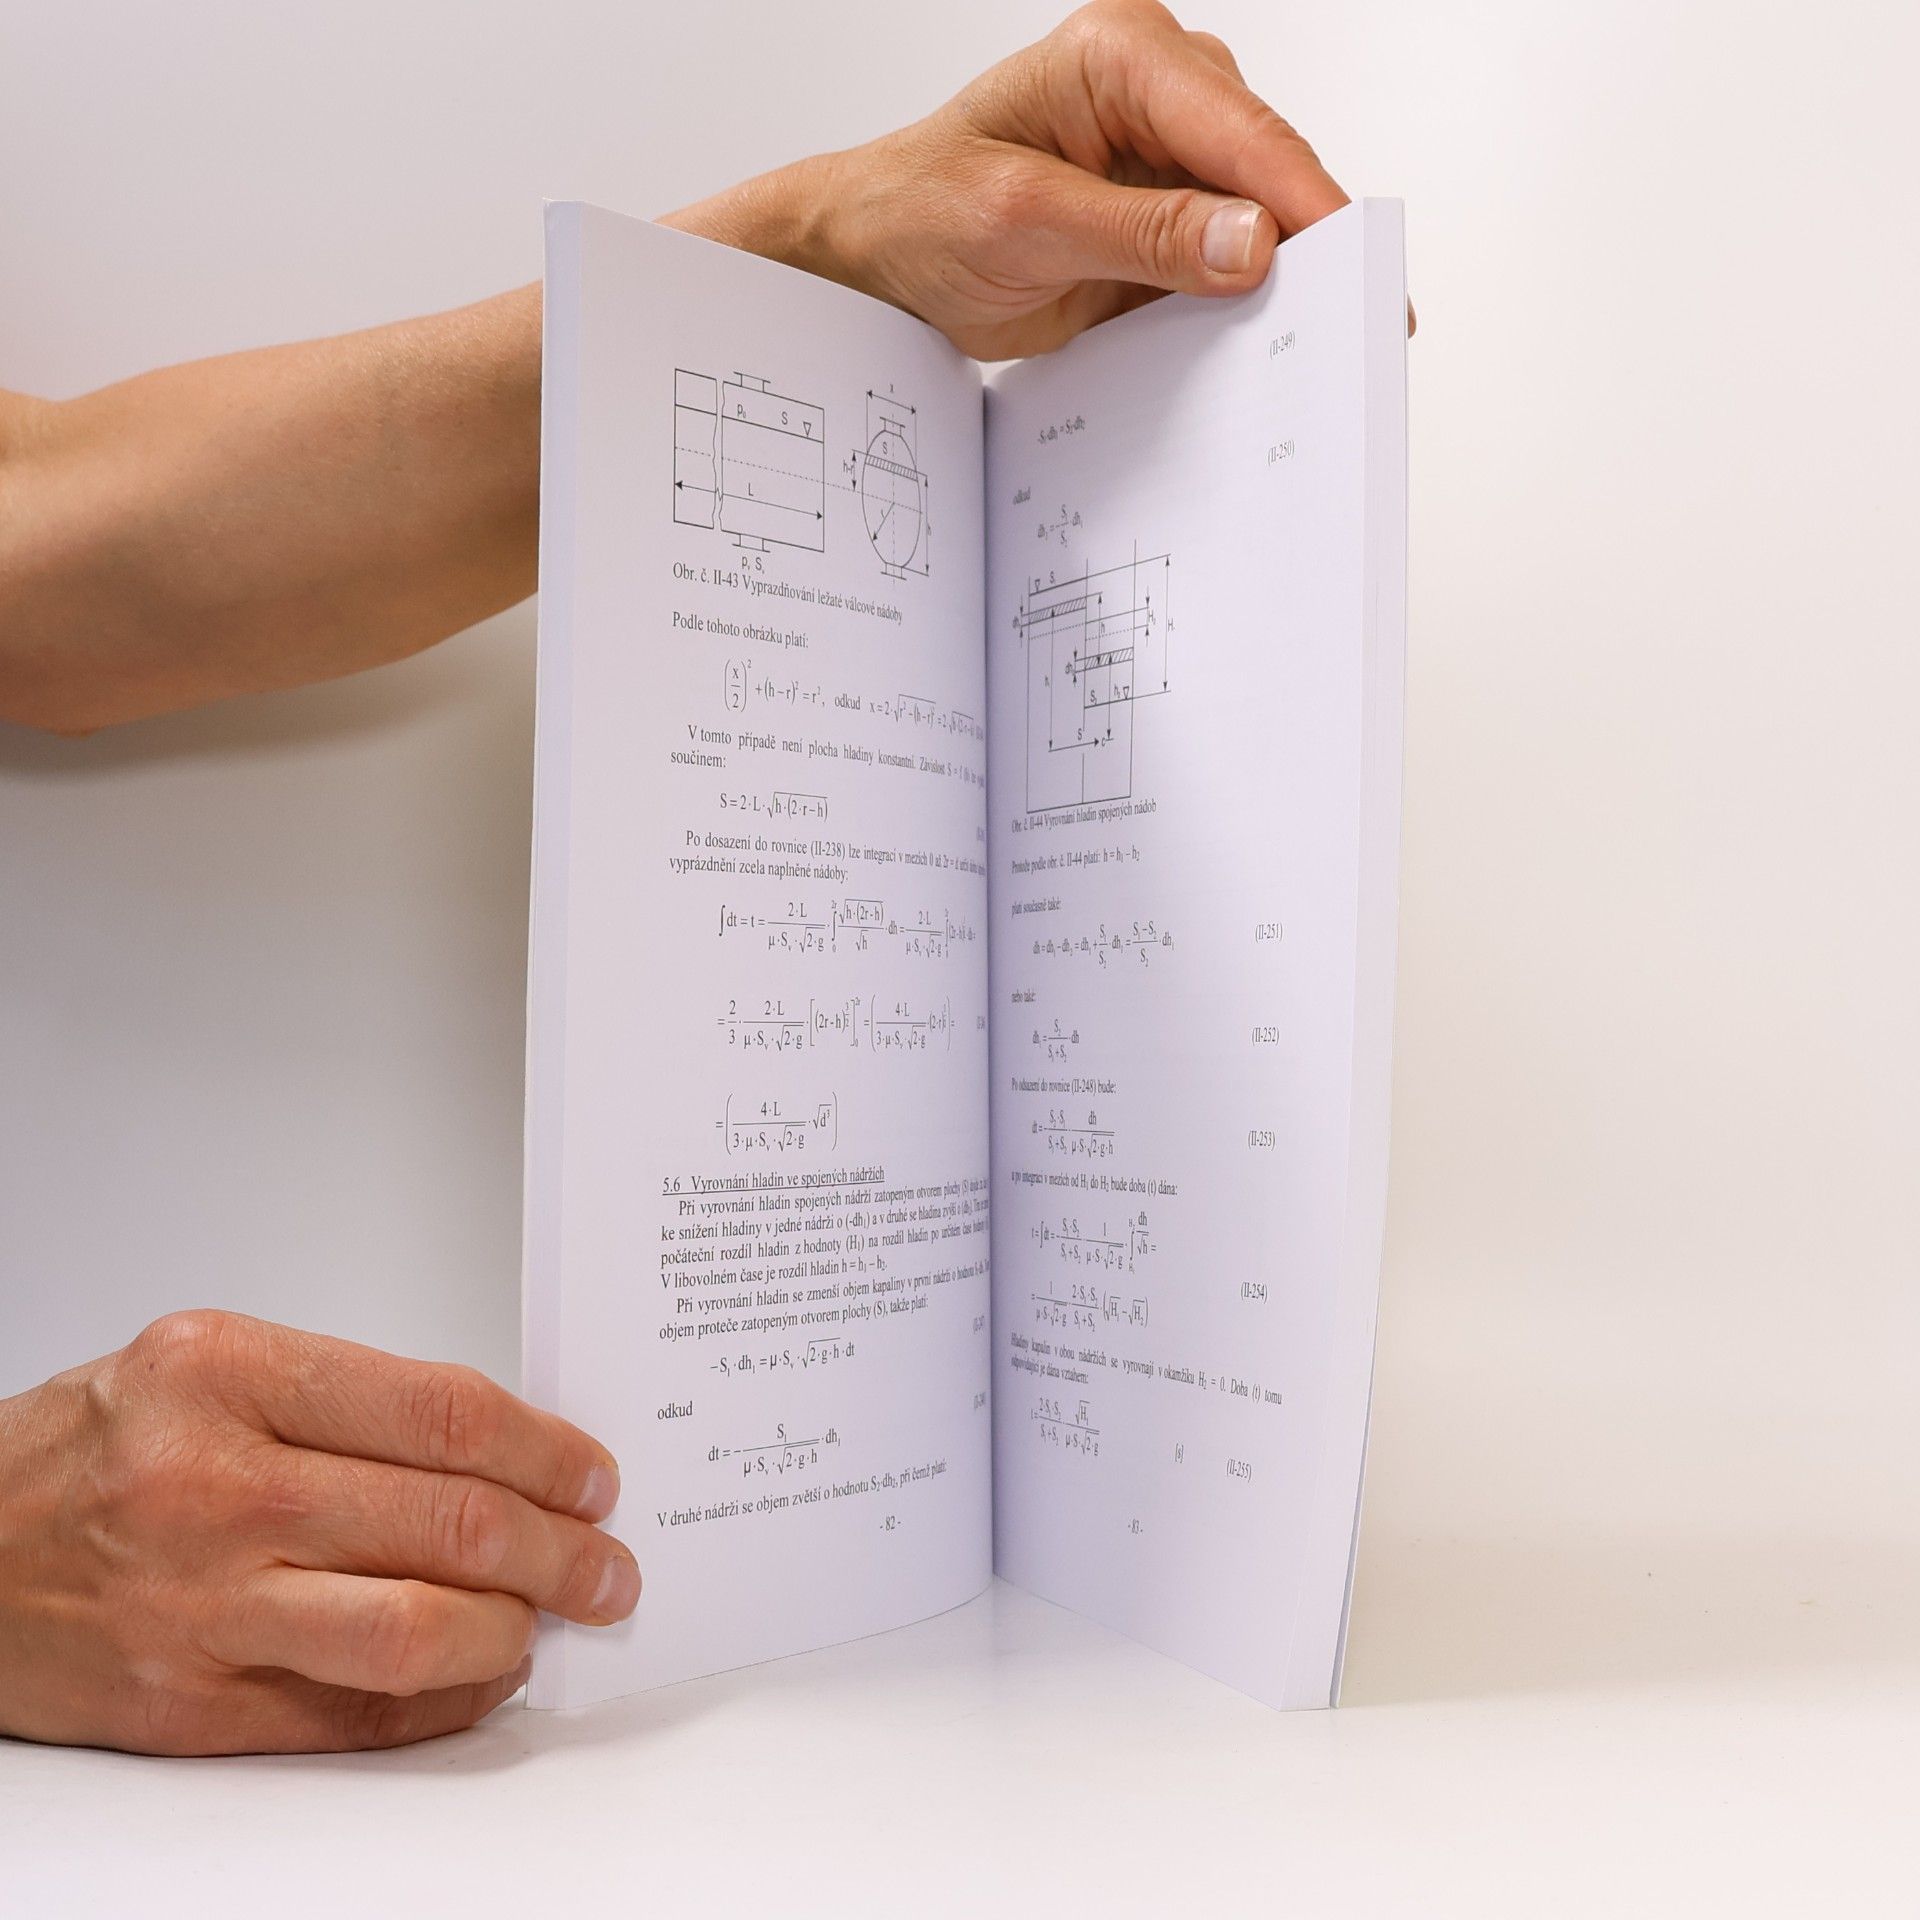 p₀ S
L
p, Sᵥ
x
S
h-r
r
h
Obr. č. II-43 Vyprazdňování ležaté válcové nádoby
Podle tohoto obrázku platí:
(x/2)² + (h − r)² = r², odkud x = 2·√(r² − (h − r)²) = 2·√(h·(2·r −
V tomto případě není plocha hladiny konstantní. Závislost S = f (h) lze
součinem:
S = 2·L·√(h·(2·r − h))
Po dosazení do rovnice (II-238) lze integrací v mezích 0 až 2r = d určit dobu
vyprázdnění zcela naplněné nádoby:
∫dt = t = 2·L/(μ·Sᵥ·√(2·g)) · ∫₀²ʳ √(h·(2r - h))/√h · dh = 2·L/(μ·Sᵥ·√(2·g)) · ∫₀²ʳ (2r - h)^½ · dh =
= 2/3 · 2·L/(μ·Sᵥ·√(2·g)) · [(2r - h)^(3/2)]₀²ʳ = (4·L/(3·μ·Sᵥ·√(2·g)) · (2·r)^(3/2)) =
= (4·L/(3·μ·Sᵥ·√(2·g)) · √d³)
5.6 Vyrovnání hladin ve spojených nádržích
Při vyrovnání hladin spojených nádrží zatopeným otvorem plochy (S) dojde
ke snížení hladiny v jedné nádrži o (-dh₁) a v druhé se hladina zvýší o (dh₂).
počáteční rozdíl hladin z hodnoty (H₁) na rozdíl hladin po určitém čase hodnoty
V libovolném čase je rozdíl hladin h = h₁ – h₂.
Při vyrovnání hladin se zmenší objem kapaliny v první nádrži o hodnotu S₁·dh₁.
objem proteče zatopeným otvorem plochy (S), takže platí:
−S₁·dh₁ = μ·Sᵥ·√(2·g·h)·dt
odkud
dt = − S₁/(μ·Sᵥ·√(2·g·h)) · dh₁
V druhé nádrži se objem zvětší o hodnotu S₂·dh₂, při čemž platí:
- 82 -
(II-249)
-S₁·dh₁ = S₂·dh₂
(II-250)
odkud
dh₂ = − S₁/S₂ · dh₁
S₁
dh₁
h
H₂
H₁
dh₂
h₁
S₂ h₂
S
Obr. č. II-44 Vyrovnání hladin spojených nádob
Protože podle obr. č. II-44 platí: h = h₁ – h₂
platí současně také:
dh = dh₁ − dh₂ = dh₁ + S₁/S₂ · dh₁ = (S₁ − S₂)/S₂ · dh₁ (II-251)
nebo také:
dh₁ = S₂/(S₁ + S₂) · dh (II-252)
Po odsazení do rovnice (II-248) bude:
dt = − S₂·S₁/(S₁ + S₂) · dh/(μ·S·√(2·g·h)) (II-253)
a po integraci v mezích od H₁ do H₂ bude doba (t) dána:
t = ∫dt = − S₁·S₂/(S₁ + S₂) · 1/(μ·S·√(2·g)) · ∫ dh/√h =
= 1/(μ·S·√(2·g)) · 2·S₁·S₂/(S₁ + S₂) · (√H₁ − √H₂) (II-254)
Hladiny kapalin v obou nádržích se vyrovnají v okamžiku H₂ = 0. Doba (t) tomu
odpovídající je dána vztahem:
t = 2·S₁·S₂/(S₁ + S₂) · √H₁/(μ·S·√(2·g)) [s] (II-255)
- 83 -